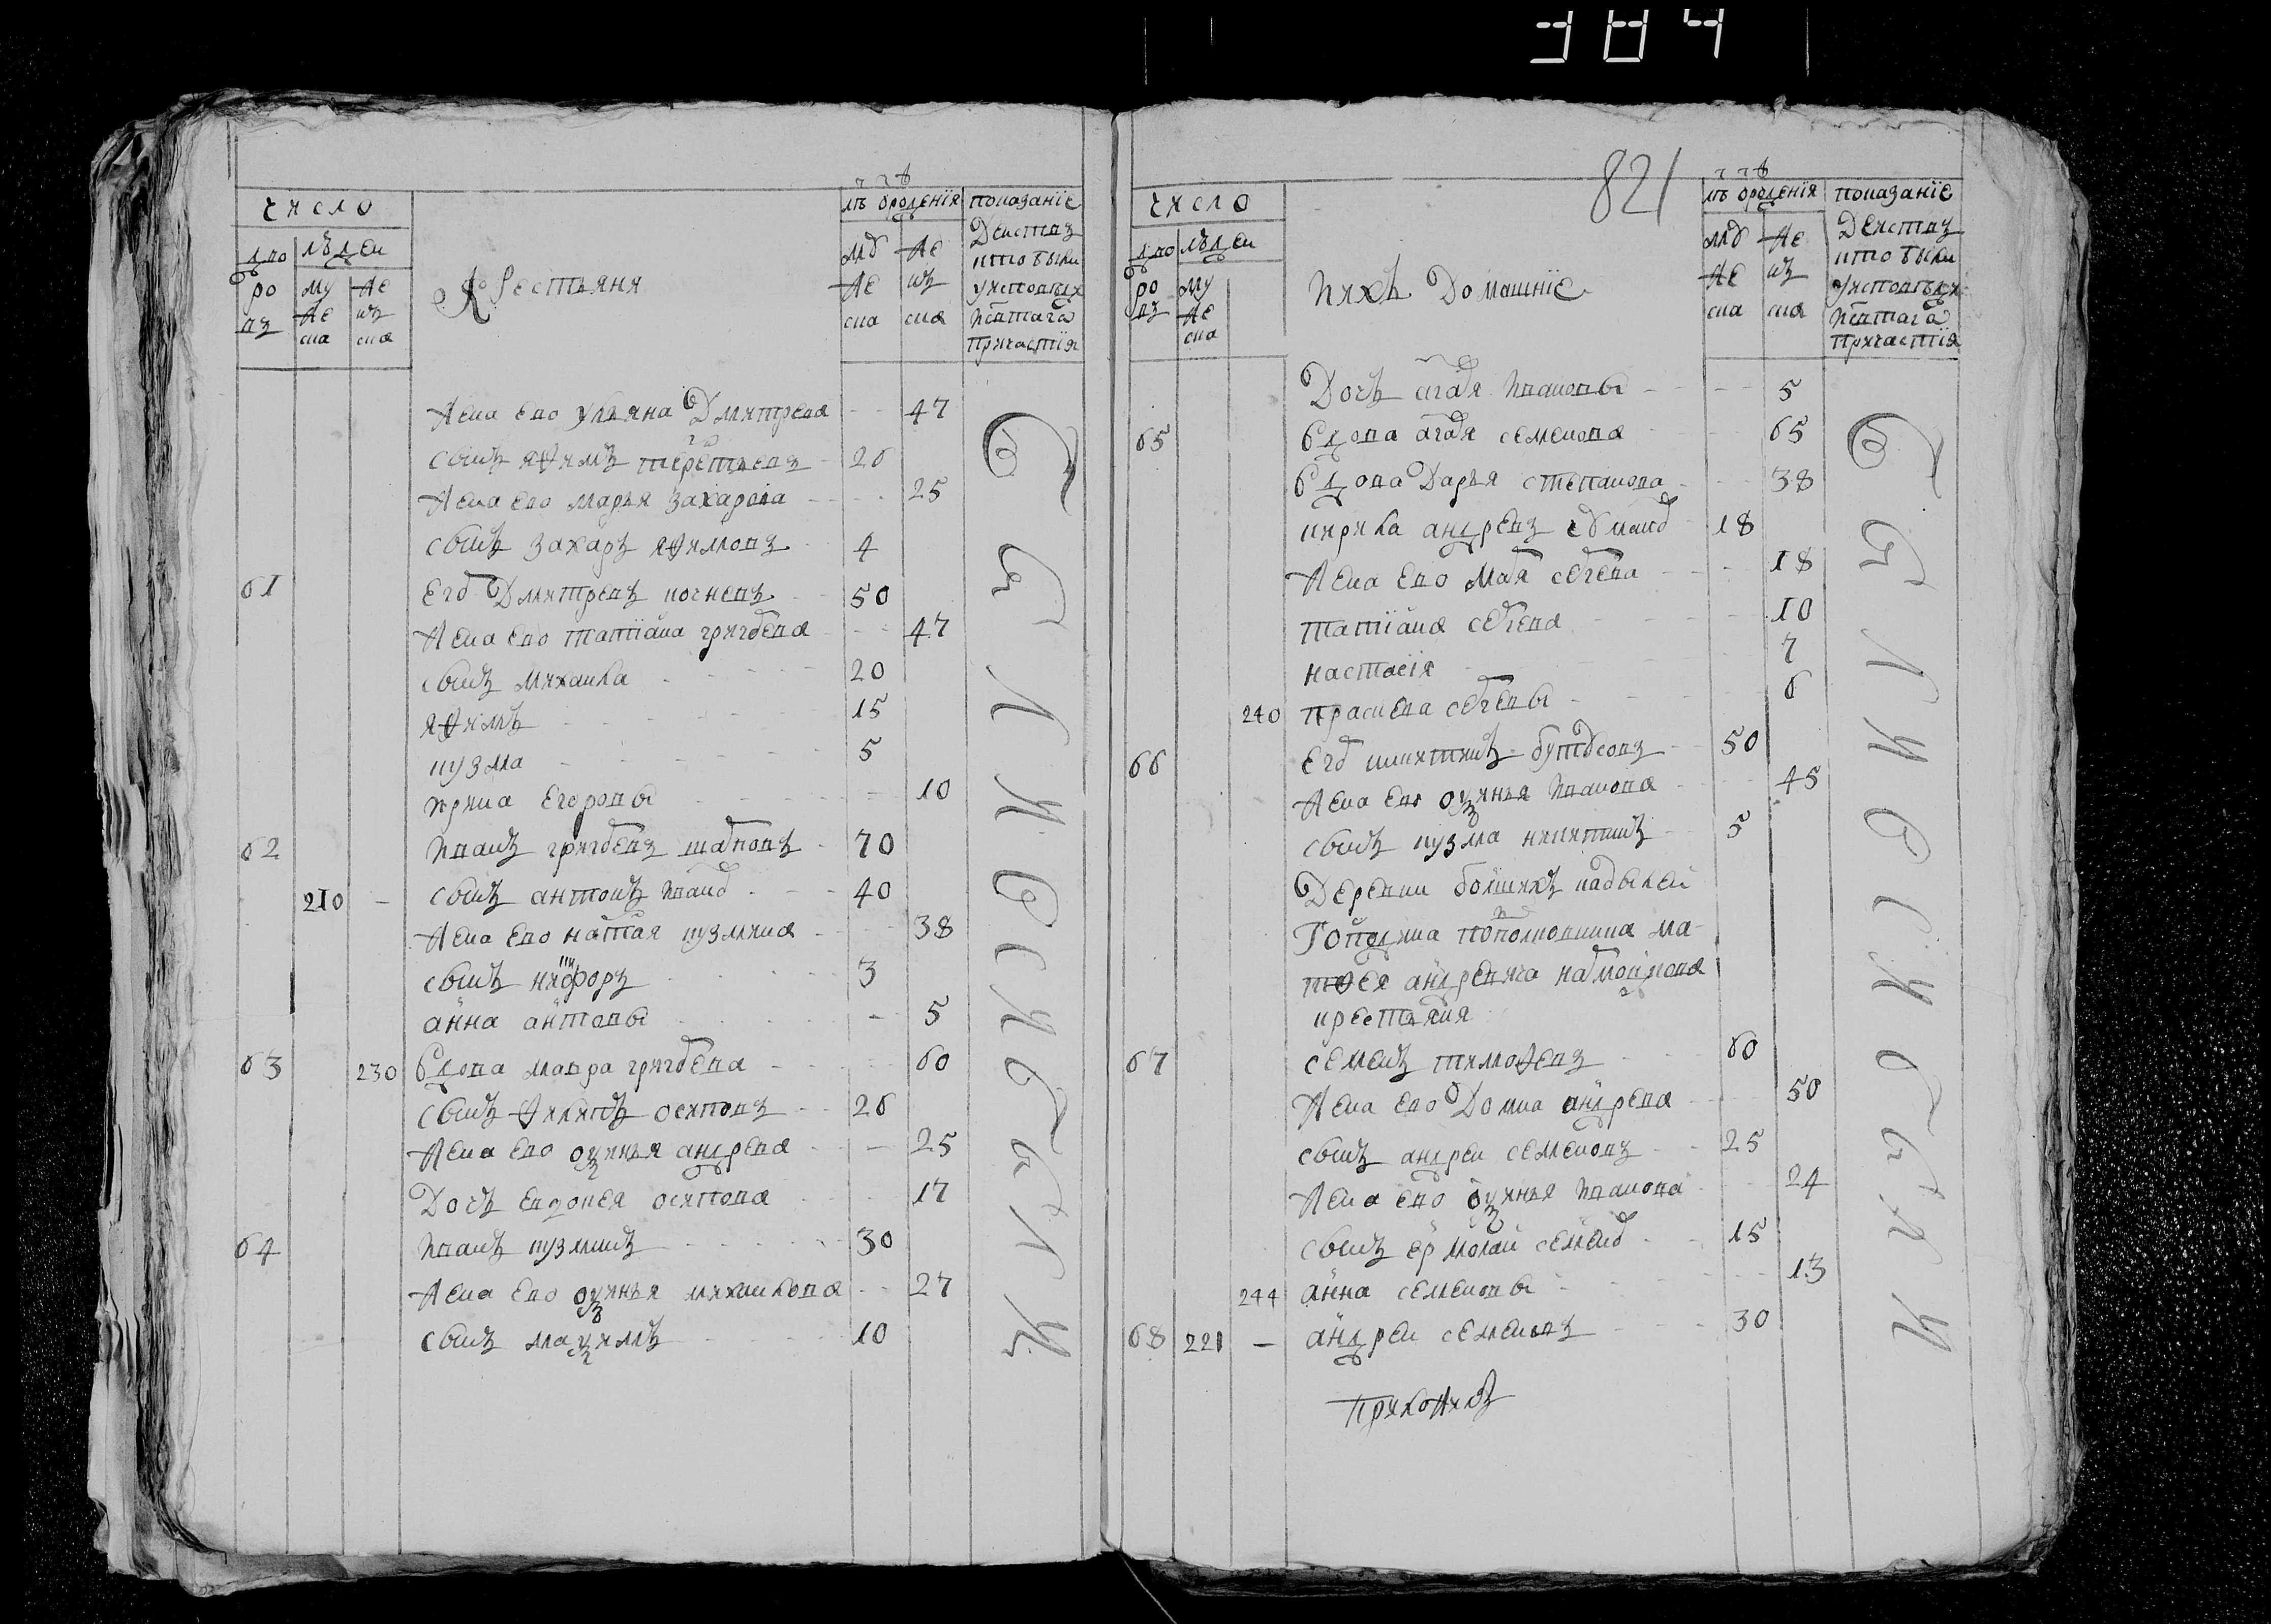 384
число
дво
ро
въ
людеи
му
же
ска
же
нъ
ска
Крестьяня
лѣ ѡрождения
му
же
ска
же
нъ
ска
показанїе
Действъ
кто были
у исповеди
и святаго
причастїя
жена ево ульяна Дмитрева 47
сынъ яѳимъ терентьевъ 26
жена ево марья захарова 25
сынъ захаръ яѳимовъ 4
61 Егоръ Дмитревъ 50
жена ево татїана григорева 47
сынъ михаила 20
яѳимъ 15
кузма 5
ирина егоровы 10
62 иванъ григоревъ 70
210 – сынъ антонъ иванов 40
жена ево наталя кузмина 38
сынъ никифоръ 3
анна антоновы 5
63 230 вдова мавра григорева 60
сынъ ѳилипъ осиповъ 26
жена ево ѯинья андрева 25
Дочь евдокея осипова 17
64 иванъ кузминъ 30
жена ево ѯинья михаилова 27
сынъ маѯимъ 10
Были на исповеди
821
число
дво
ро
въ
людеи
му
же
ска
ихъ Домашнїе
лѣ ѡрождения
му
же
ска
же
нъ
ска
показанїе
Действъ
кто были
у исповеди
и святаго
причастїя
Дочь агаѳя ивановы 5
65 вдова агаѳя семенова 65
вдова Дарья степанова 38
кирила андревъ 18
жена ево марѳя сергева 18
татїана сергева 10
настасїя 7
240 прасковя сергевы 6
66 Егоръ никитинъ 50
жена ево ѯинья иванова 45
сынъ кузма никитинъ 5
Деревни болшихъ
Господина полковника ма-
тѳея андреича
крестьяня
67 семенъ тимоѳевъ 60
жена ево Домна андрева 50
сынъ андреи семеновъ 25
жена ево ѯинья иванова 24
сынъ ермолаи семенов 15
244 анна семеновы 13
68 221 – андреи семеновъ 30